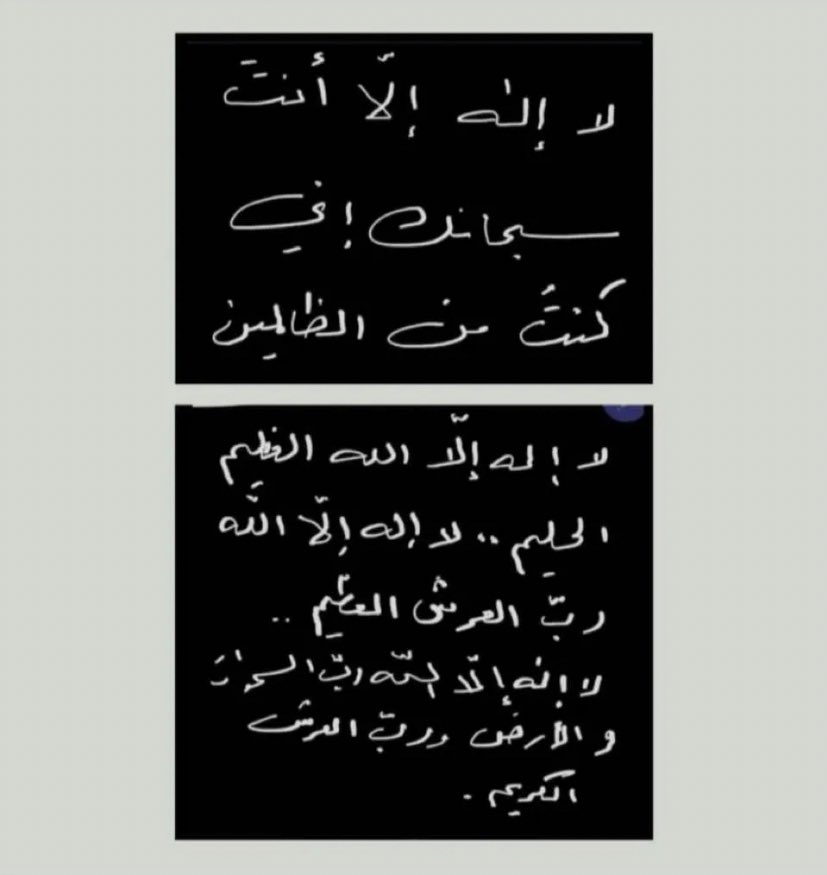 لا إله إلّا أنتَ
سبحانك إني
كنتُ من الظالمين
لا إله إلّا الله العظيم
الحليم .. لا إله إلّا اللّه
ربّ العرش العظيم ..
لا إله إلّا اللّه ربّ السموات
والأرض وربّ العرش
الكريم .